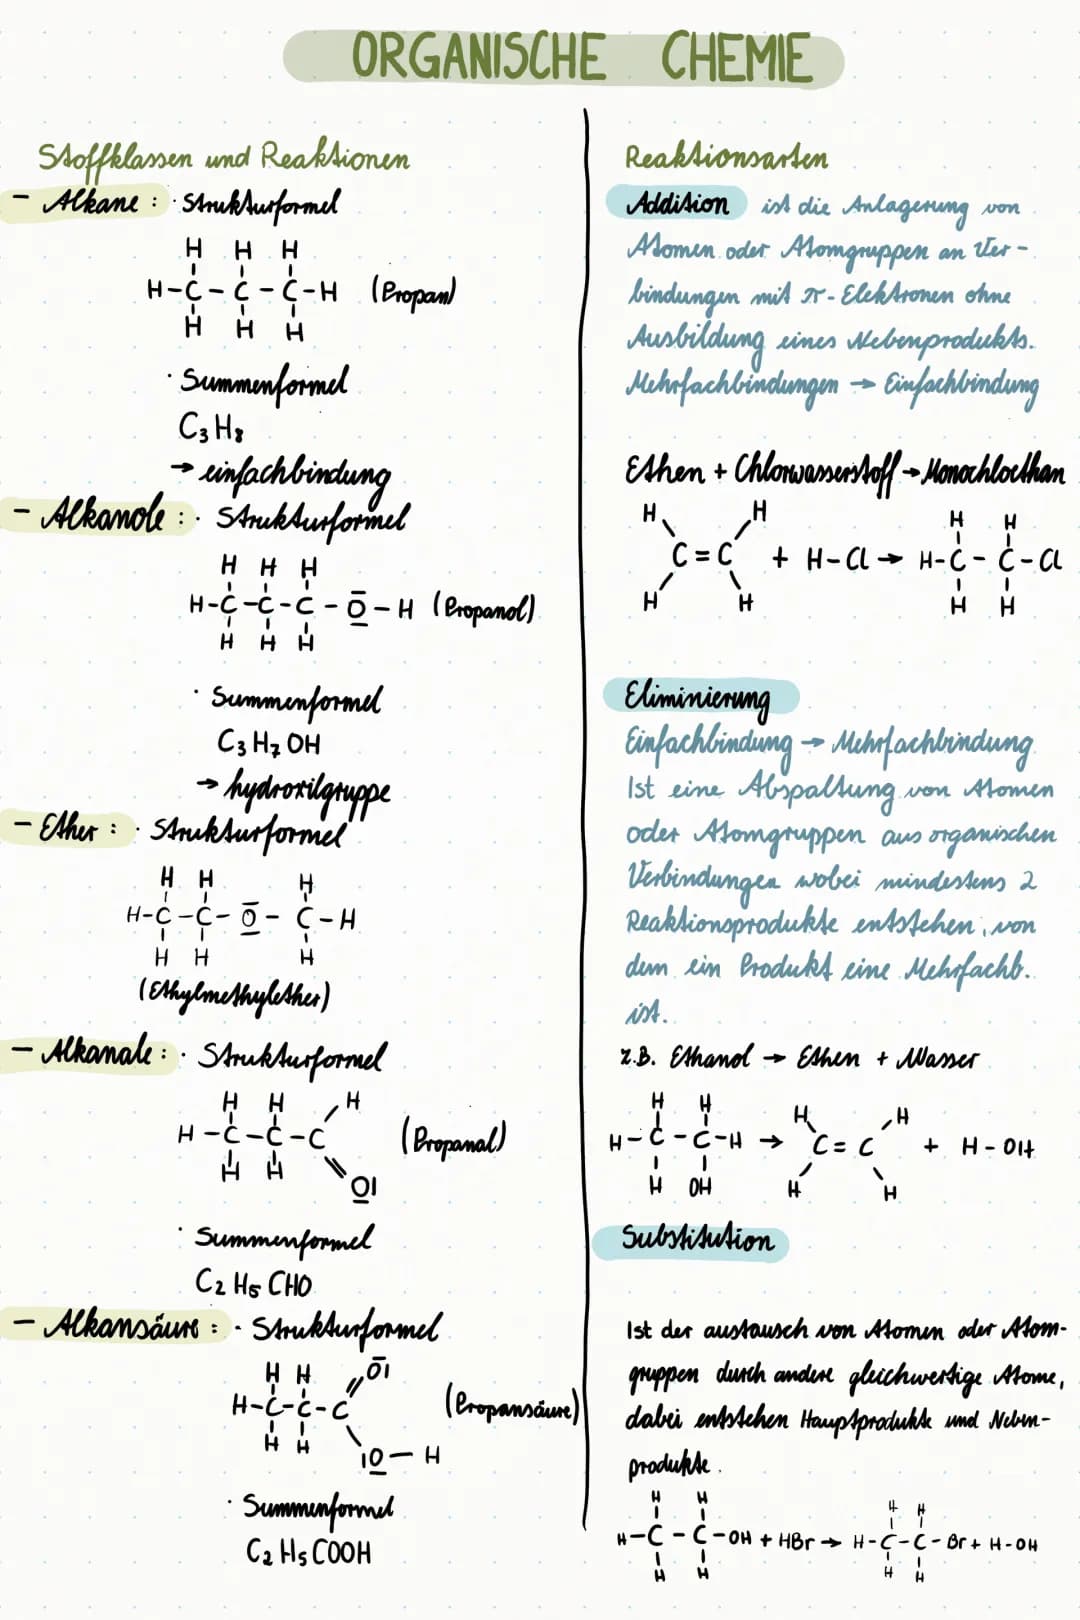 ORGANISCHE CHEMIE
Stoffklassen und Reaktionen
- Alkane : · Strukturformel
H H H
H-C-C-C-H (Propan)
H H H
· Summenformel
C₃H₈
→ einfachbindung
- Alkanole : · Strukturformel
H H H
H-C-C-C-O-H (Propanol)
H H H
· Summenformel
C₃H₇OH
→ hydroxilgruppe
- Ether : · Strukturformel
H H H
H-C-C-O-C-H
H H H
(Ethylmethylether)
- Alkanale : · Strukturformel
H H H
H-C-C-C (Propanal)
H H O
· Summenformel
C₂H₅CHO
- Alkansäure : · Strukturformel
H H O
H-C-C-C (Propansäure)
H H O-H
· Summenformel
C₂H₅COOH
Reaktionsarten
Addition ist die Anlagerung von
Atomen oder Atomgruppen an Ver-
bindungen mit π-Elektronen ohne
Ausbildung eines Nebenprodukts.
Mehrfachbindungen → Einfachbindung
Ethen + Chlorwasserstoff → Monochlorethan
H H H H
C=C + H-Cl → H-C-C-Cl
H H H H
Eliminierung
Einfachbindung → Mehrfachbindung
Ist eine Abspaltung von Atomen
oder Atomgruppen aus organischen
Verbindungen wobei mindestens 2
Reaktionsprodukte entstehen, von
dem ein Produkt eine Mehrfachb.
ist.
z.B. Ethanol → Ethen + Wasser
H H H H
H-C-C-H → C=C + H-OH
H OH H H
Substitution
Ist der austausch von Atomen oder Atom-
gruppen durch andere gleichwertige Atome,
dabei entstehen Hauptprodukte und Neben-
produkte.
H H H H
H-C-C-OH + HBr → H-C-C-Br + H-OH
H H H H